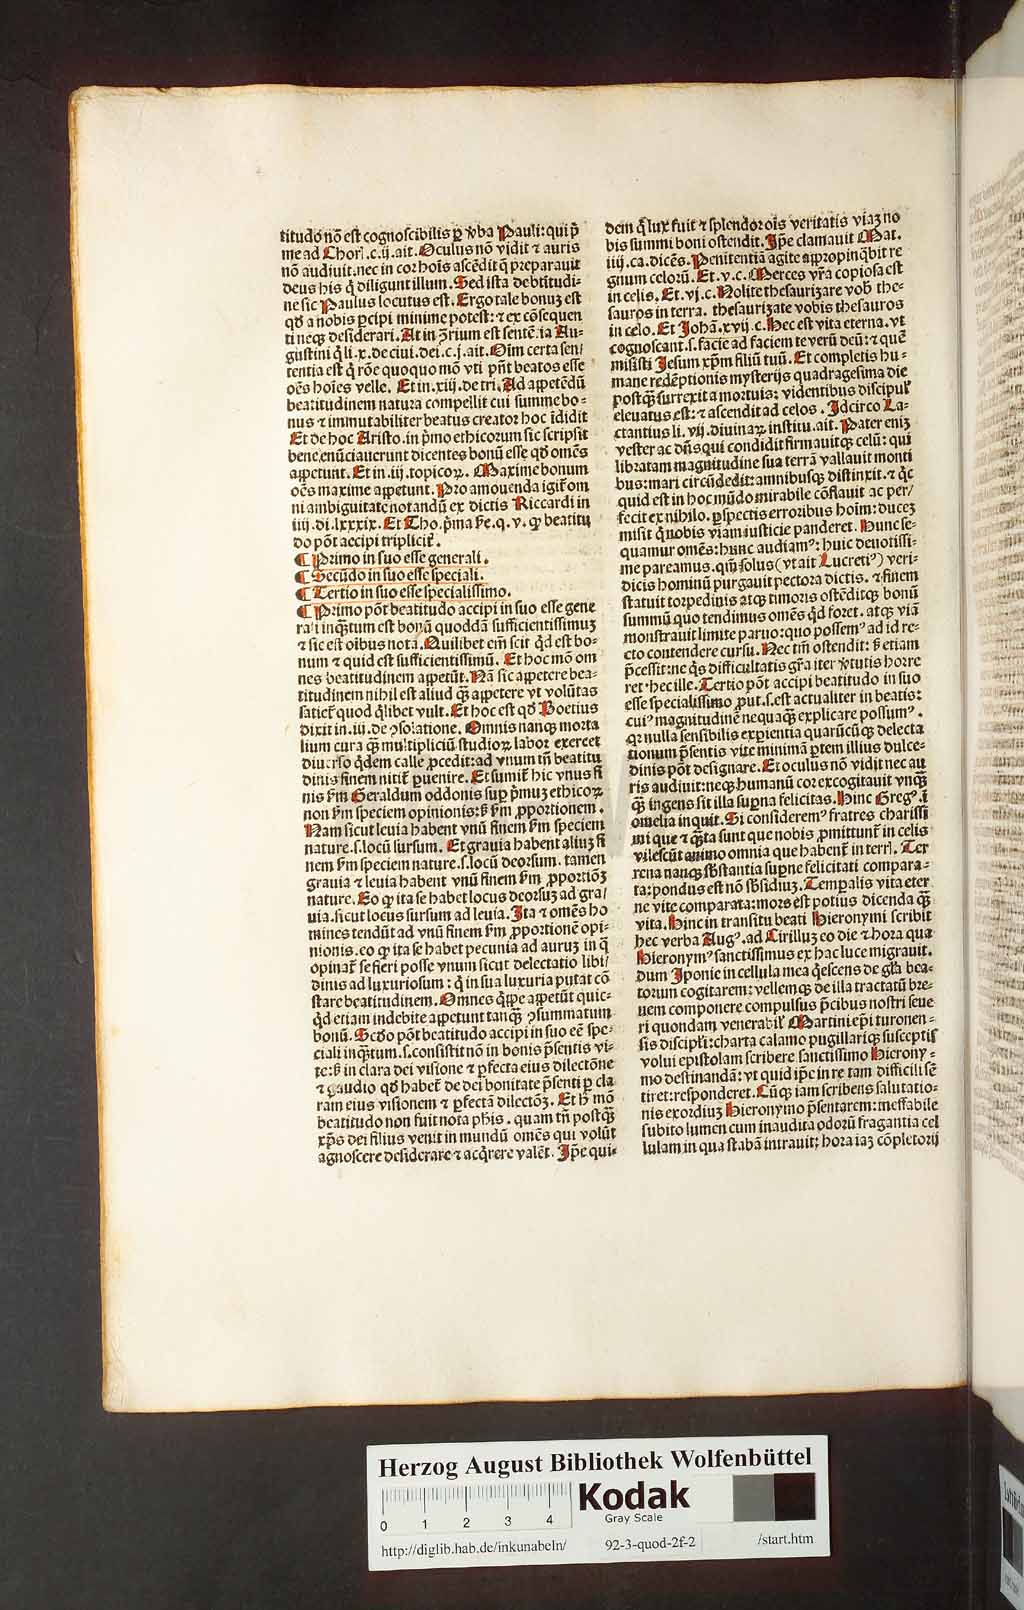 titudo nō est cognoscibilis ꝑ v̄ba Pauli: qui pͥ
me ad Choꝛī.c.ij.ait. Oculus nō vidit ⁊ auris
nō audiuit.nec in coꝛ hoīs ascēdit q̄ pꝛeparauit
deus his q̄ diligunt illum. Sed ista debtitudi-
ne sic Paulus locutus est. Ergo tale bonuꝫ est
qd̄ a nobis ꝑcipi minime potest: ⁊ ex cōsequen
ti neqꝫ desiderari. At in ꝯ̄rium est sentē.ia Au-
gustini q̄ li.x.de ciui.dei.c.j.ait. Oīm certa sen/
tentia est q̄ rōe quoquo mō vti pn̄t beatos esse
oēs hoīes velle. Et in.xiij.de tri. Ad appetēdū
beatitudinem natura compellit cui summe bo-
nus ⁊ immutabiliter beatus creatoꝛ hoc īdidit
Et de hoc Aristo.in pͥmo ethicorum sic scripsit
bene.enūciauerunt dicentes bonū esse qd̄ omēs
appetunt. Et in.iij.topicoꝝ. Maxime bonum
oēs maxime appetunt. Pꝛo amouenda igit̄ om
ni ambiguitate notandū ex dictis Riccardi in
iiij.di.lxxxix. Et Tho.pͥma se.q.v. ꝙ beatitu
do pōt accipi triplicit̄.
¶ Pꝛimo in suo esse generali.
¶ Secūdo in suo esse speciali.
¶ Tertio in suo esse specialissimo.
¶ Pꝛimo pōt beatitudo accipi in suo esse gene
rali inqͣtum est bonū quoddā sufficientissimuꝫ
⁊ sic est oībus nota. Quilibet em̄ scit qd̄ est bo-
num ⁊ quid est sufficientissimū. Et hoc mō om
nes beatitudinem appetūt. Nā sic appetere bea-
titudinem nihil est aliud qͣꝫ appetere vt volūtas
satiet̄ quod qͥlibet vult. Et hoc est qd̄ Boetius
dixit in.iij.de ꝯsolatione. Omnis nanqꝫ moꝛta
lium cura qͣꝫ multipliciū studioꝝ laboꝛ exercet
diuerso qͥdem calle ꝓcedit: ad vnum tn̄ beatitu
dinis finem nitit̄ ꝑuenire. Et sumit̄ hic vnus fi
nis ẜm Geraldum oddonis suꝑ pͥmuꝫ ethicoꝝ
non ẜm speciem opinionis: ß ẜm ꝓpoꝛtionem.
Nam sicut leuia habent vnū finem ẜm speciem
nature.s.locū sursum. Et grauia habent aliuꝫ fi
nem ẜm speciem nature.s.locū deoꝛsum. tamen
grauia ⁊ leuia habent vnū finem ẜm ꝓpoꝛtiōꝫ
nature. Eo ꝙ ita se habet locus deoꝛsuꝫ ad gra/
uia.sicut locus sursum ad leuia. Ita ⁊ omēs ho
mines tendūt ad vnū finem ẜm ꝓpoꝛtionē opi-
nionis.eo ꝙ ita se habet pecunia ad auruꝫ in q̄
opinat̄ se fieri posse vnum sicut delectatio libi/
dinis ad luxuriosum: q̄ in sua luxuria putat cō
stare beatitudinem. Omnes qͥppe appetūt quic-
qd̄ etiam indebite appetunt tanqͣꝫ ꝯsummatum
bonū. Scd̄o pōt beatitudo accipi in suo eē spe-
ciali inqͣꝫtum.s.consistit nō in bonis pn̄sentis vi-
te: ß in clara dei visione ⁊ ꝑfecta eius dilectōne
⁊ gaudio qd̄ habet̄ de dei bonitate pn̄senti ꝑ cla
ram eius visionem ⁊ ꝑfectā dilectōꝫ. Et h̄ mō
beatitudo non fuit nota phīs. quam tn̄ postqͣꝫ
xp̄s dei filius venit in mundū omēs qui volūt
agnoscere desiderare ⁊ acqͥrere valēt. Ip̄e qui-
dem q̄ lux fuit ⁊ splendoꝛ oīs veritatis viaꝫ no
bis summi boni ostendit. Ip̄e clamauit Mat.
iiij.ca.dicēs. Penitentiā agite appꝛopinqͣbit re
gnum celoꝛū. Et.v.c. Merces vr̄a copiosa est
in celis. Et.vj.c. Nolite thesaurizare vob̄ the-
sauros in terra. thesaurizate vobis thesauros
in celo. Et Johā.xvij.c. Hec est vita eterna.vt
cognoscant.s.facie ad faciem te verū deū: ⁊ quē
misisti Jesum xp̄m filiū tuū. Et completis hu-
mane redēptionis mysterijs quadragesima die
postqͣꝫ surrexit a moꝛtuis: videntibus discipul'
eleuatus est: ⁊ ascendit ad celos. Idcirco La-
ctantius li.vij.diuinaꝝ institu.ait. Pater eniꝫ
vester ac dn̄s qui condidit firmauitqꝫ celū: qui
libratam magnitudine sua terrā vallauit monti
bus: mari circūdedit: amnibusqꝫ distinxit. ⁊ qͥc
quid est in hoc mūdo mirabile cōflauit ac per/
fecit ex nihilo. ꝑspectis erroꝛibus hoīm: duceꝫ
misit q̄ nobis viam iusticie panderet. Hunc se-
quamur omēs: hunc audiamꝰ: huic deuotissi-
me pareamus. qm̄ solus (vt ait Lucretiꝰ) veri-
dicis hominū purgauit pectoꝛa dictis. ⁊ finem
statuit toꝛpedinis atqꝫ timoꝛis ostēditqꝫ bonū
summū quo tendimus omēs qd̄ foꝛet. atqꝫ viā
monstrauit limite paruo: quo possemꝰ ad id re-
cto contendere cursu. Nec tm̄ ostendit: ß etiam
pͣcessit: ne qͥs difficultatis gr̄a iter v̄tutis hoꝛre
ret. hec ille. Tertio pōt accipi beatitudo in suo
esse specialissimo ꝓut.s.est actualiter in beatis:
cuiꝰ magnitudinē nequaqͣꝫ explicare possumꝰ.
qꝛ nulla sensibilis experientia quarūcūqꝫ delecta
tionum pn̄sentis vite minimā ꝑtem illius dulce-
dinis pōt designare. Et oculus nō vidit nec au
ris audiuit: neqꝫ humanū coꝛ excogitauit vnqͣꝫ
qͣꝫ ingens sit illa suꝑna felicitas. Hinc Gregꝰ.ī
omelia inquit. Si consideremꝰ fratres charissi
mi que ⁊ qͣꝫta sunt que nobis ꝓmittunt̄ in celis
vilescūt animo omnia que habent̄ in terrī. Ter
rena nanqꝫ sb̄stantia suꝑne felicitati compara-
ta: pondus est nō sb̄sidiuꝫ. Temꝑalis vita eter
ne vite comparata: moꝛs est potius dicenda qͣꝫ
vita. Hinc in transitu beati Hieronymi scribit
hec verba Augꝰ. ad Cirilluꝫ eo die ⁊ hoꝛa qua
Hieronymꝰ sanctissimus ex hac luce migrauit.
Dum Iponie in cellula mea qͥescens de gl̄a bea-
toꝛum cogitarem: vellemqꝫ de illa tractatū bre-
uem componere compulsus pͣcibus nostri seue
ri quondam venerabil' Martini ep̄i turonen-
sis discip̄li: charta calamo pugillariqꝫ susceptis
volui epistolam scribere sanctissimo Hierony-
mo destinandā: vt quid ip̄e in re tam difficili sē
tiret: responderet. Cūqꝫ iam scribens salutatio-
nis exoꝛdiuꝫ Hieronymo pn̄sentarem: ineffabile
subito lumen cum inaudita odoꝛū fragantia cel
lulam in qua stabā intrauit; hoꝛa iaꝫ cōpletoꝛij
Herzog August Bibliothek Wolfenbüttel
0 1 2 3 4
Kodak
Gray Scale
http://diglib.hab.de/inkunabeln/ 92-3-quod-2f-2 /start.htm